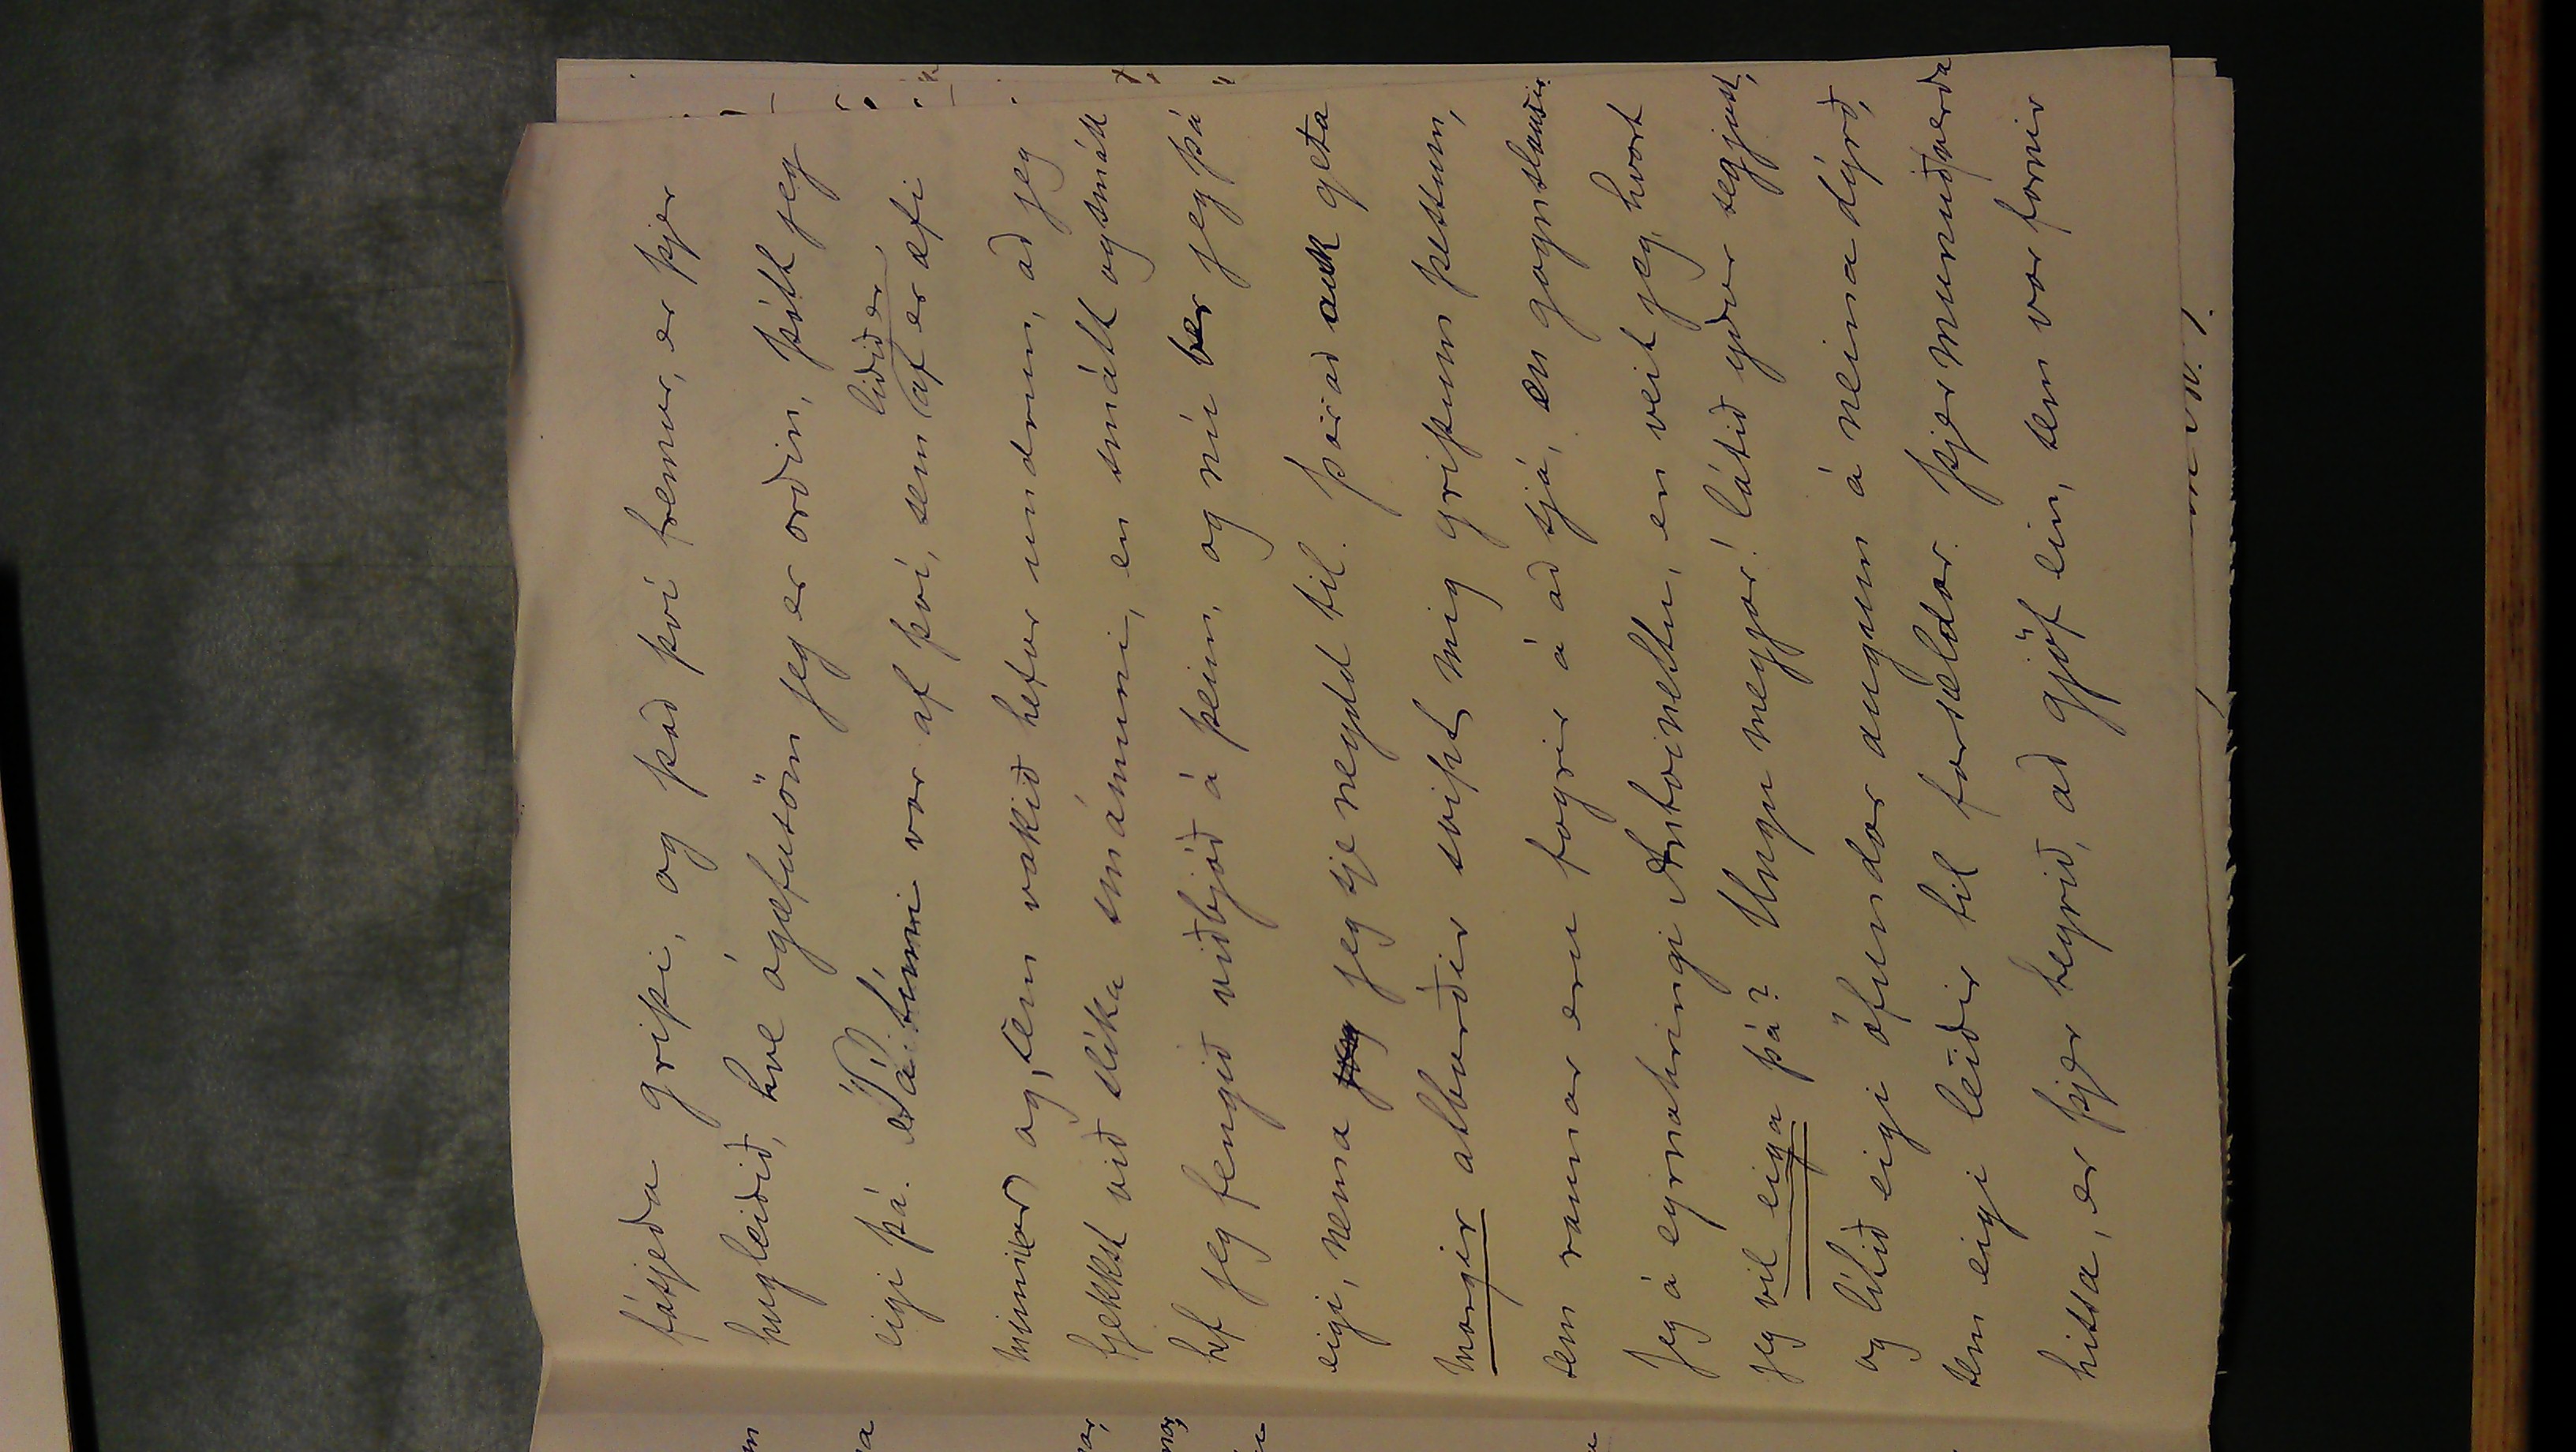 fásjeða gripi, og það því fremur, er þjer
hugleiðið, hve ógæfusöm jeg er orðin, þótt jeg
eigi þá. Á tímni var af því, sem liðið er af er æfi
minnar og, sem vakið hefur undrun, að jeg
fjekkst við slíka smámuni, en smátt og smátt
hef jeg fengið viðbjóð á þeim, og nú ber jeg þá
eigi, nema jeg sje neydd til. Þar að auk geta
margir atburðir svipt mig gripum þessum,
sem raunar eru fagrir á að sjá, en gagnslausir.
Jeg á eyrnahringi Antoinettu, en veit jeg, hvort
jeg vil eiga þá? Ungu meyjar! látið yður segjast,
og lítið eigi öfundar augum á neina dýrð,
sem eigi leiðir til farsældar. Þjer munuð verða
hissa, er þjer heyrið, að gjöf ein, sem var fornir